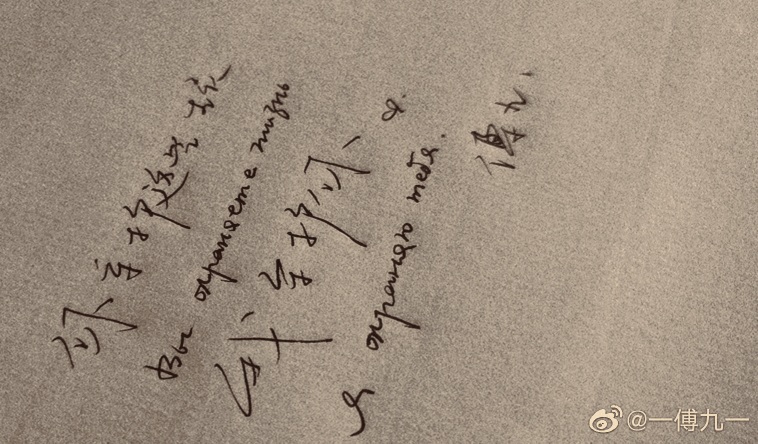 你守护
Вы охраняете жизнь
守护你
Я охраняю тебя.
傅九
@一傅九一